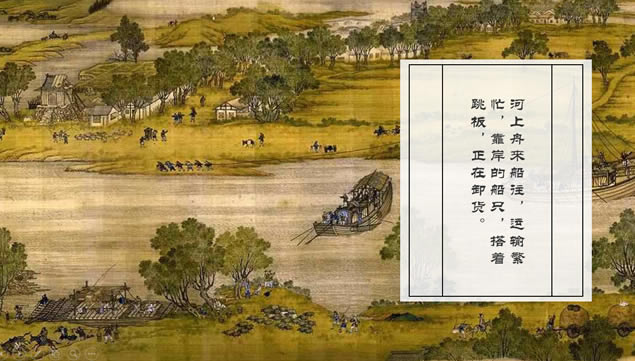 河上舟来船往，运输繁
忙，靠岸的船只，搭着
跳板，正在卸货。